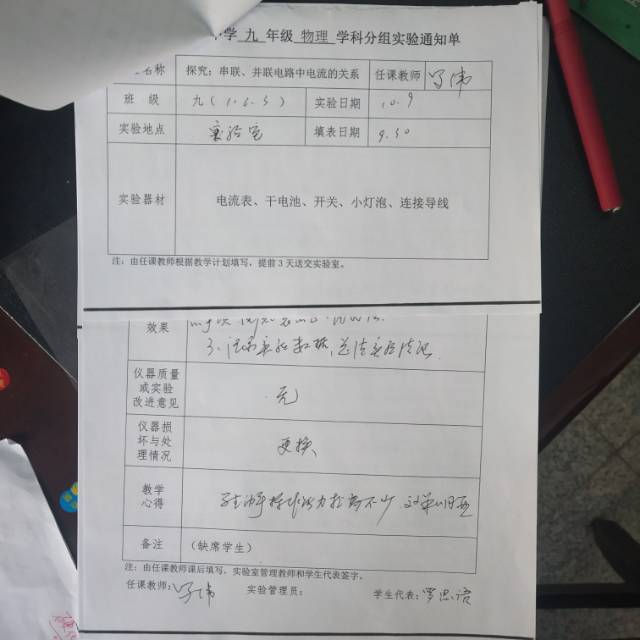 中学 九 年级 物理 学科分组实验通知单
名称 探究：串联、并联电路中电流的关系 任课教师
班 级 九（1.6.5） 实验日期 10.9
实验地点 实验室 填表日期 9.30
实验器材 电流表、干电池、开关、小灯泡、连接导线
注：由任课教师根据教学计划填写，提前 3 天送交实验室。
效果
3.
仪器质量
或实验
改进意见
无
仪器损
坏与处
理情况
更换
教学
心得
备注 （缺席学生）
注：由任课教师课后填写，实验室管理教师和学生代表签字。
任课教师： 实验管理员： 学生代表：罗思语